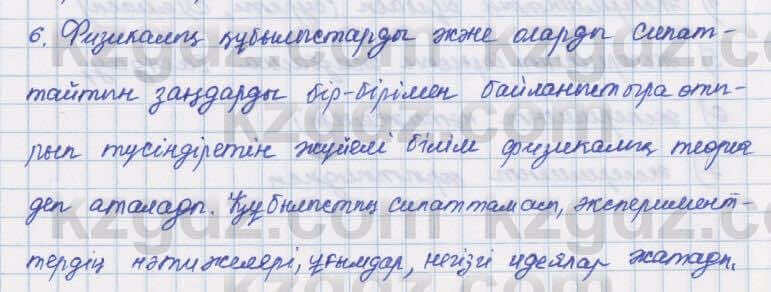 6. Физикалық құбылыстарды және оларды сипат-
тайтын заңдарды бір-бірімен байланыстыра оты-
рып түсіндіретін жүйелі білім физикалық теория
деп аталады. Құбылыстың сипаттамасы, эксперимент-
тердің нәтижелері, ұғымдар, негізгі идеялар жатады.